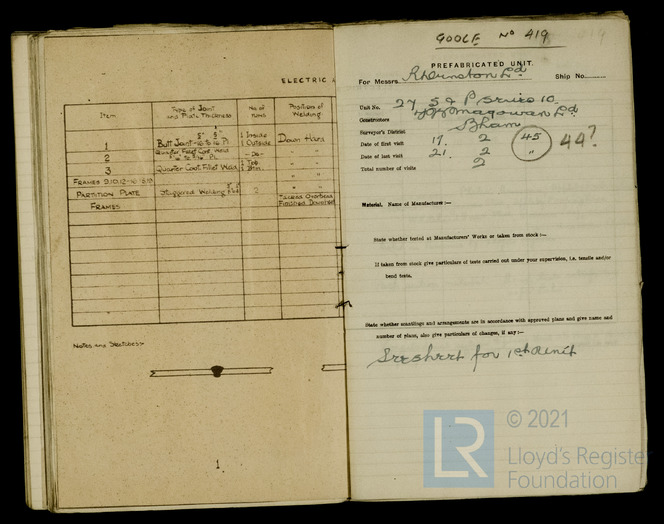 ELECTRIC A
Item
Type of Joint and Plate Thickness
No of runs
Position of Welding
1
Butt Joint
1 Inside
1 Outside
Down Hand
2
Quarter Fillet Cont Weld
- Do -
" "
3
Quarter Cont Fillet Weld
1 Top
1 Btm
" "
FRAMES
PARTITION PLATE
Staggered Welding
2
" "
FRAMES
Notes and Sketches:-
1
GOOLE No 419
419
PREFABRICATED UNIT.
For Messrs. Ltd Ship No.
Unit No. 27 S & P Series 10.
Constructors Ltd
Surveyor's District B'ham
Date of first visit 17. 2 45 44?
Date of last visit 21. 2 "
Total number of visits 2
Material. Name of Manufacturer:—
State whether tested at Manufacturers' Works or taken from stock:—
If taken from stock give particulars of tests carried out under your supervision, i.e. tensile and/or
bend tests.
State whether scantlings and arrangements are in accordance with approved plans and give name and
number of plans, also give particulars of changes, if any:—
See sheet for 1st Unit
LR
© 2021
Lloyd's Register
Foundation